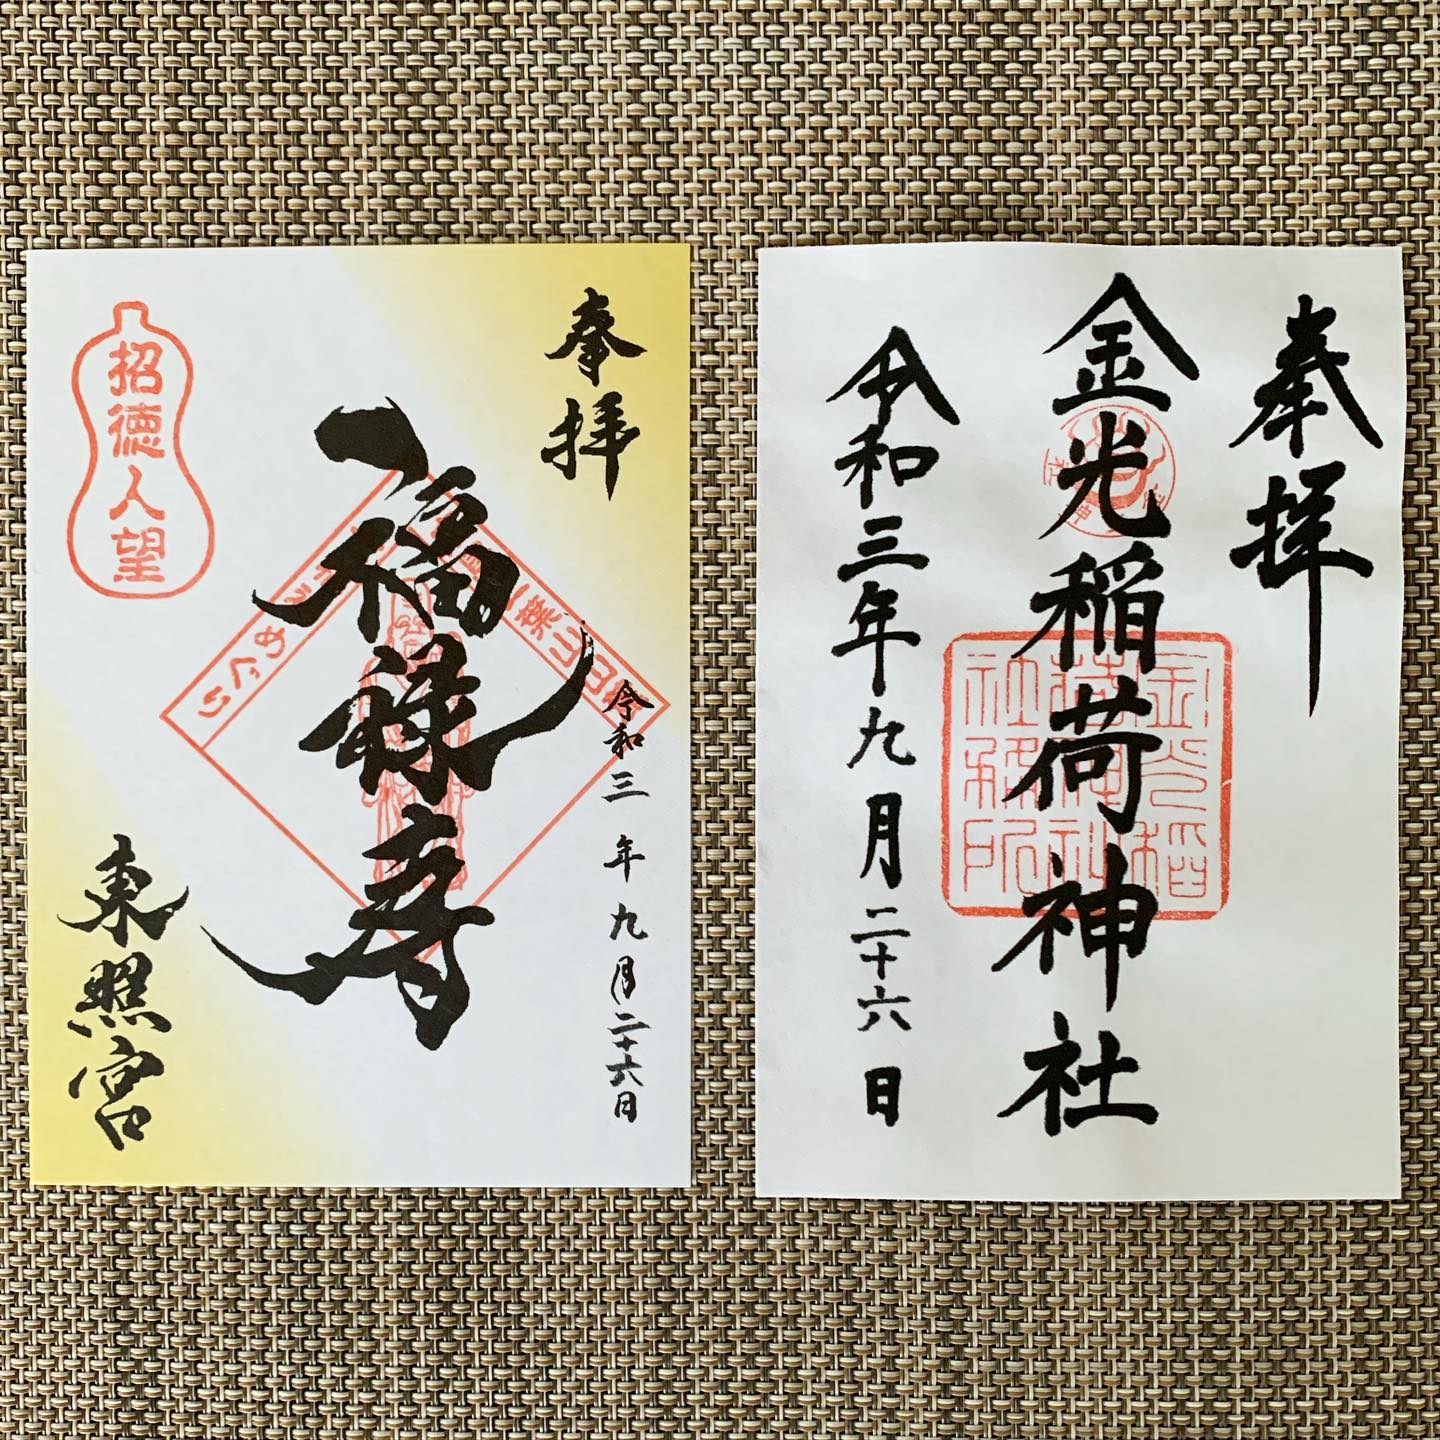 奉拝
福禄寿
令和三年九月二十六日
招徳人望
東照宮
めぐり
奉拝
金光稲荷神社
令和三年九月二十六日